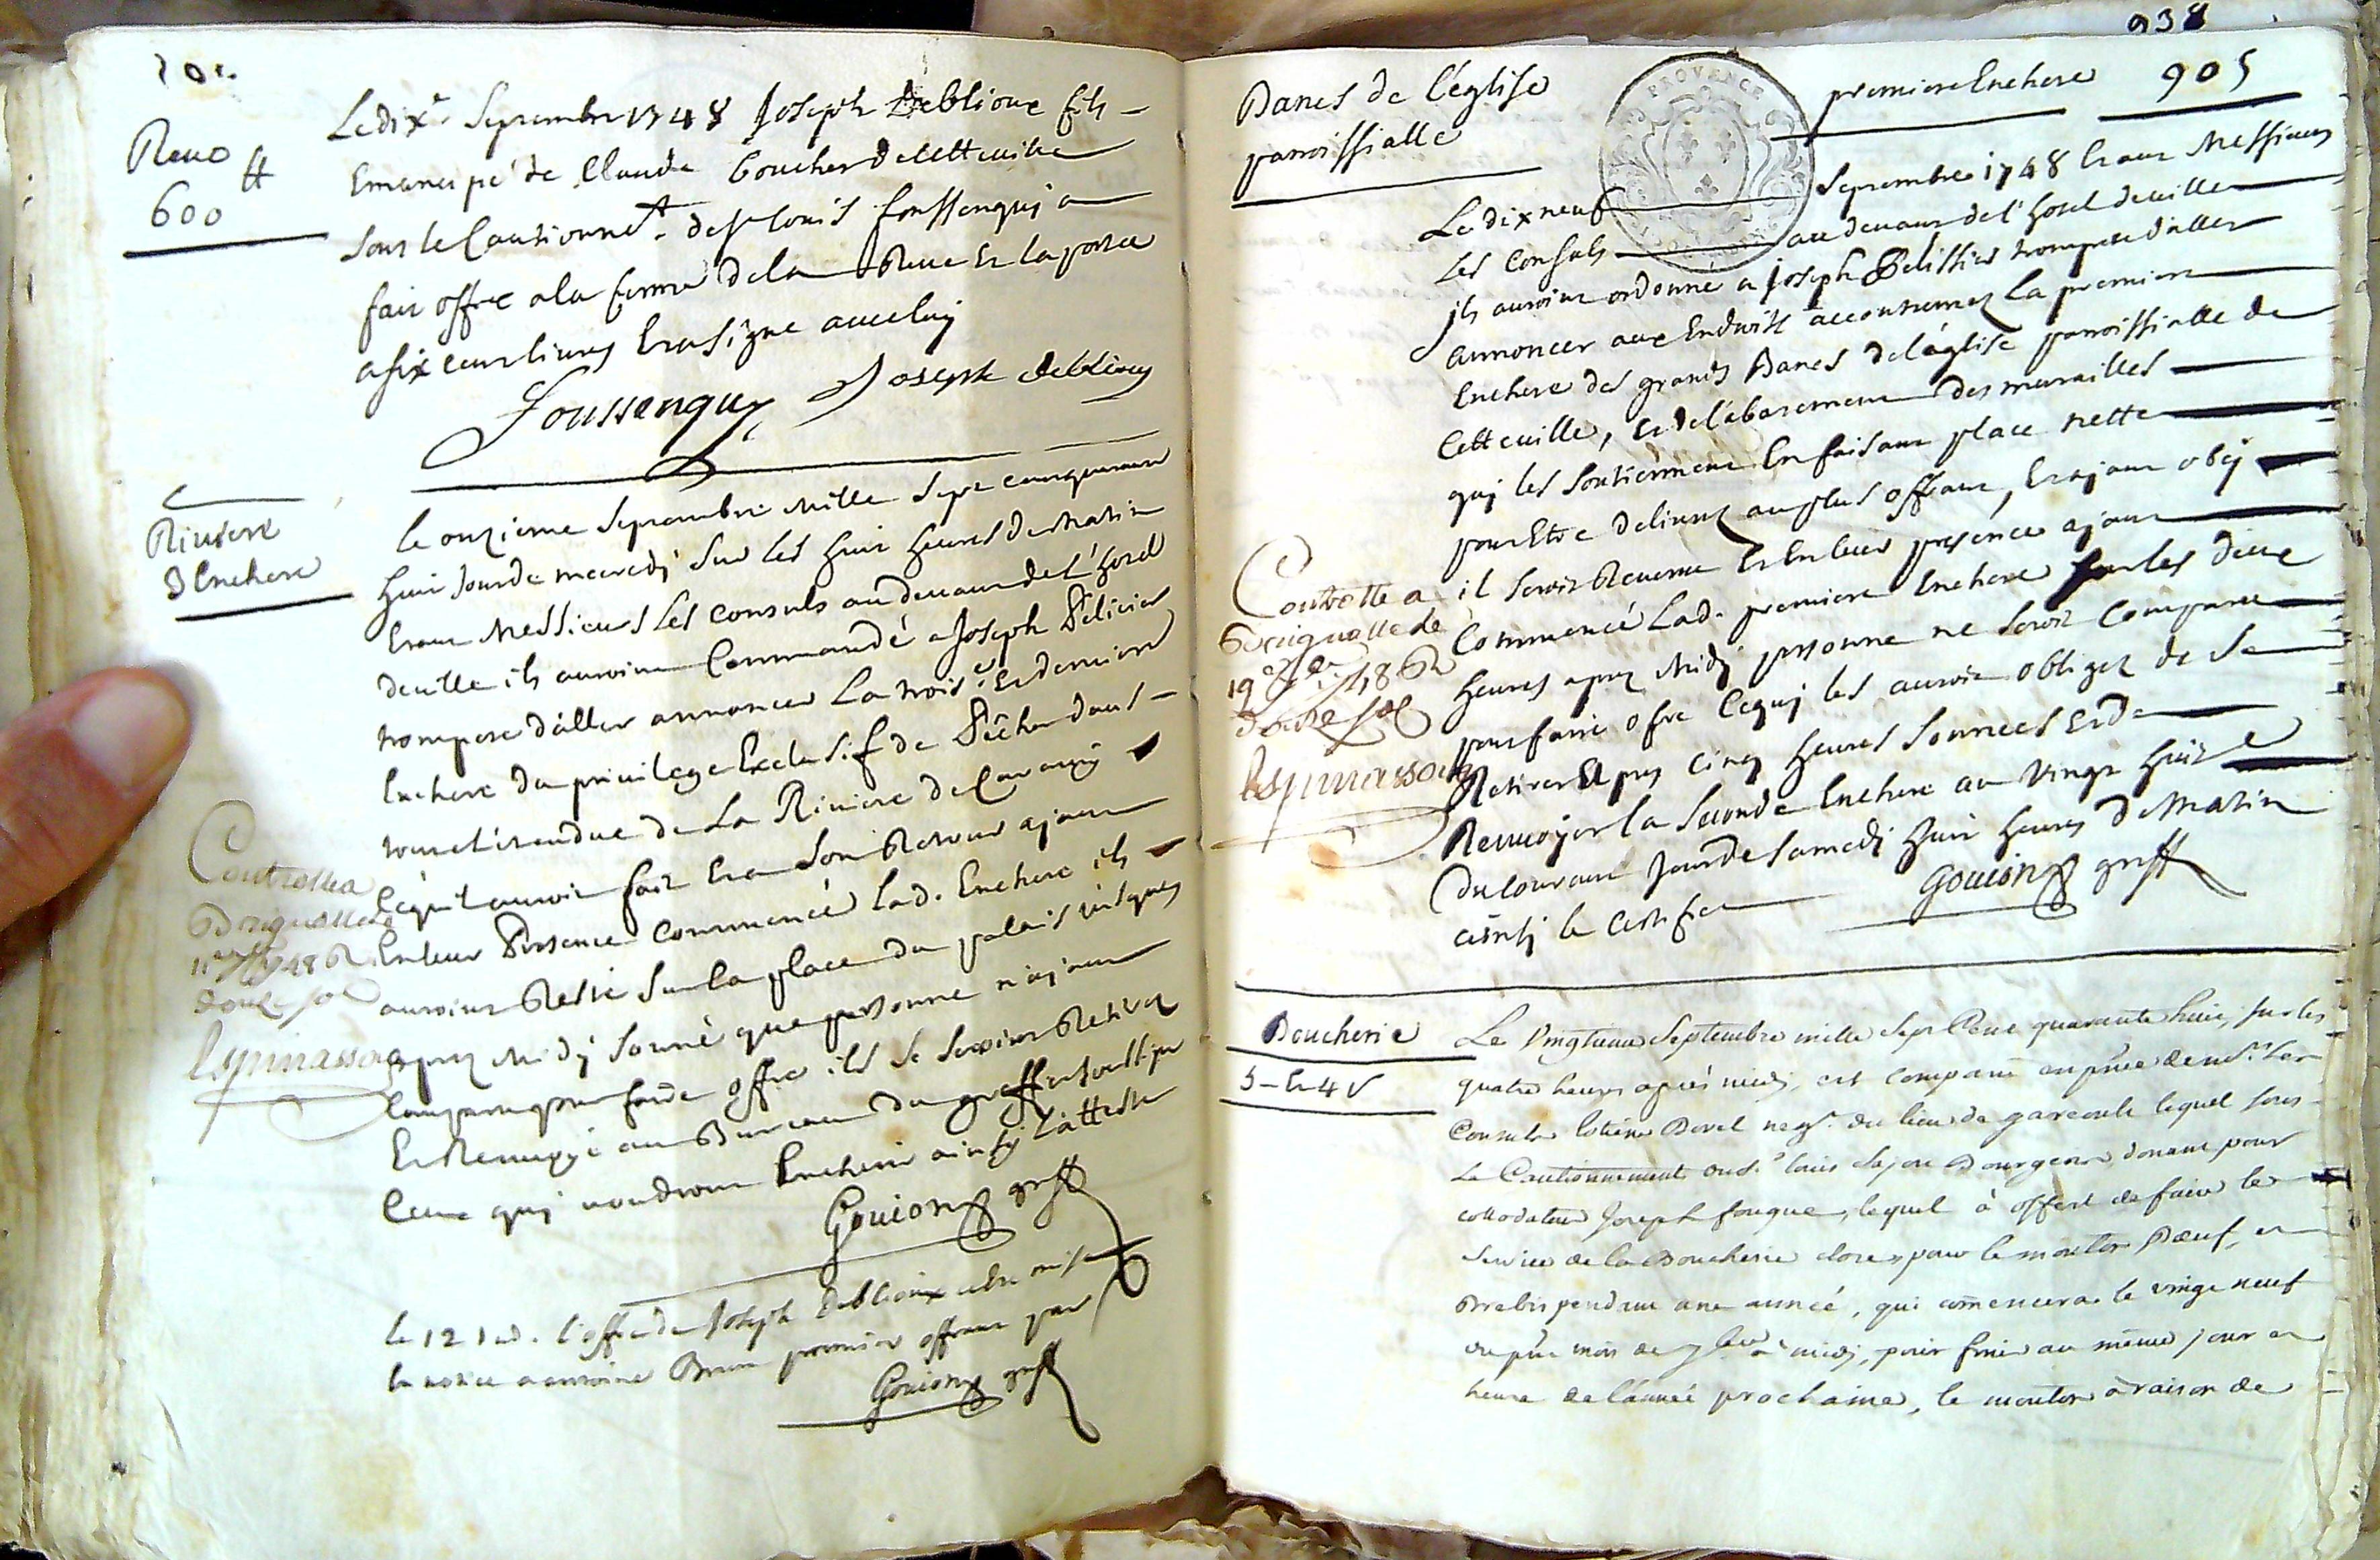 Reuo
600 ₶
Le dixe. Septembre 1748 Joseph Deblieux fils
Emancipé de Claude boucher de cette ville
sous le Cautionnet. de sr louis foussenquj a
fait offre a la ferme de la Reue Et la porte
a six cent livres Et a signé avec luy
Foussenquy Joseph deblieux
Riviere
3 Enchere
le onzieme Septembre mille sept cent quarante
huit Jour de mecredj sur les huit heures de matin
Etant Messieurs Les consuls au devant de l'hotel
de ville ils auroint Commandé a Joseph Pelicier
trompete d'aller annoncer La troise. Et derniere
Enchere du privilege Exclusif de Pêcher dans
toute l'etendue de La Riviere de Caramy
Ce qu'il auroit fait Et a son Retour ajant
En leur Presence Commencé lad. Enchere ils
auroint Resté Sur la place du palais jusques
apres Midj sonné que personne n'ajant
Comparu pour faire offre ils se seroint Retirez
Et Renvoyé au Bureau du greffe
Ceux quj voudront Encherir ainsj l'atteste
Gouion greff
Controllé a
Brignolle le
11e 7bre 1748 R
douze sol
Espinasson
le 12 dud. l'offre de Joseph Deblieux a été
la notice a antoine Brun premier offrant par
Gouion greff
938
Bancs de l'églisé
parroissialle
premiere Enchere 905
PROVENCE
Le dix neuf Septembre 1748 Etant Messieurs
Les Consuls au devant de l'hotel de ville
jls auroint ordonné a Joseph Pelissier trompete d'aller
annoncer aux Endroits accoutumez La premiere
Enchere des grands Bancs de l'église parroissialle de
Cette ville, Et de l'abaissement des murailles
quj les soutiennent En faisant place nette
pour Etre delivrez au plus offrant, Et ajant obéj
il seroit Revenu Et En leur presence ajant
Commencé Lad. premiere Enchere sur les deux
heures apres Midj personne ne seroit Comparu
pour faire ofre Ce quj les auroit obligez de se
Retirer apres cinq heures sonnées Et de
Renvoyer la seconde Enchere au vingt huit
du Courant Jour de samedj huit heures de Matin
ainsj le Certifie Gouion greff
Controllé a
Brignolle le
19e 7bre 1748 R
douze sol
Espinasson
Boucherie
5 - Et 4 s
Le vingtieme Septembre mille sept Cent quarante huit, sur les
quatre heures aprés midj, est comparu en pñce de mrs. les
Consuls Borel negt. du lieu de gareoult lequel sous
Le Cautionnement louis Bourgeois, donant pour
collodateur Joseph fouque, lequel à offert de faire le
service de la Boucherie close, pour le mouton Bœuf, et
Brebis pendant une année, qui comencera le vingt neuf
du pñt mois de 7bre a midj, pour finir au même jour et
heure de l'année prochaine, le mouton à raison de